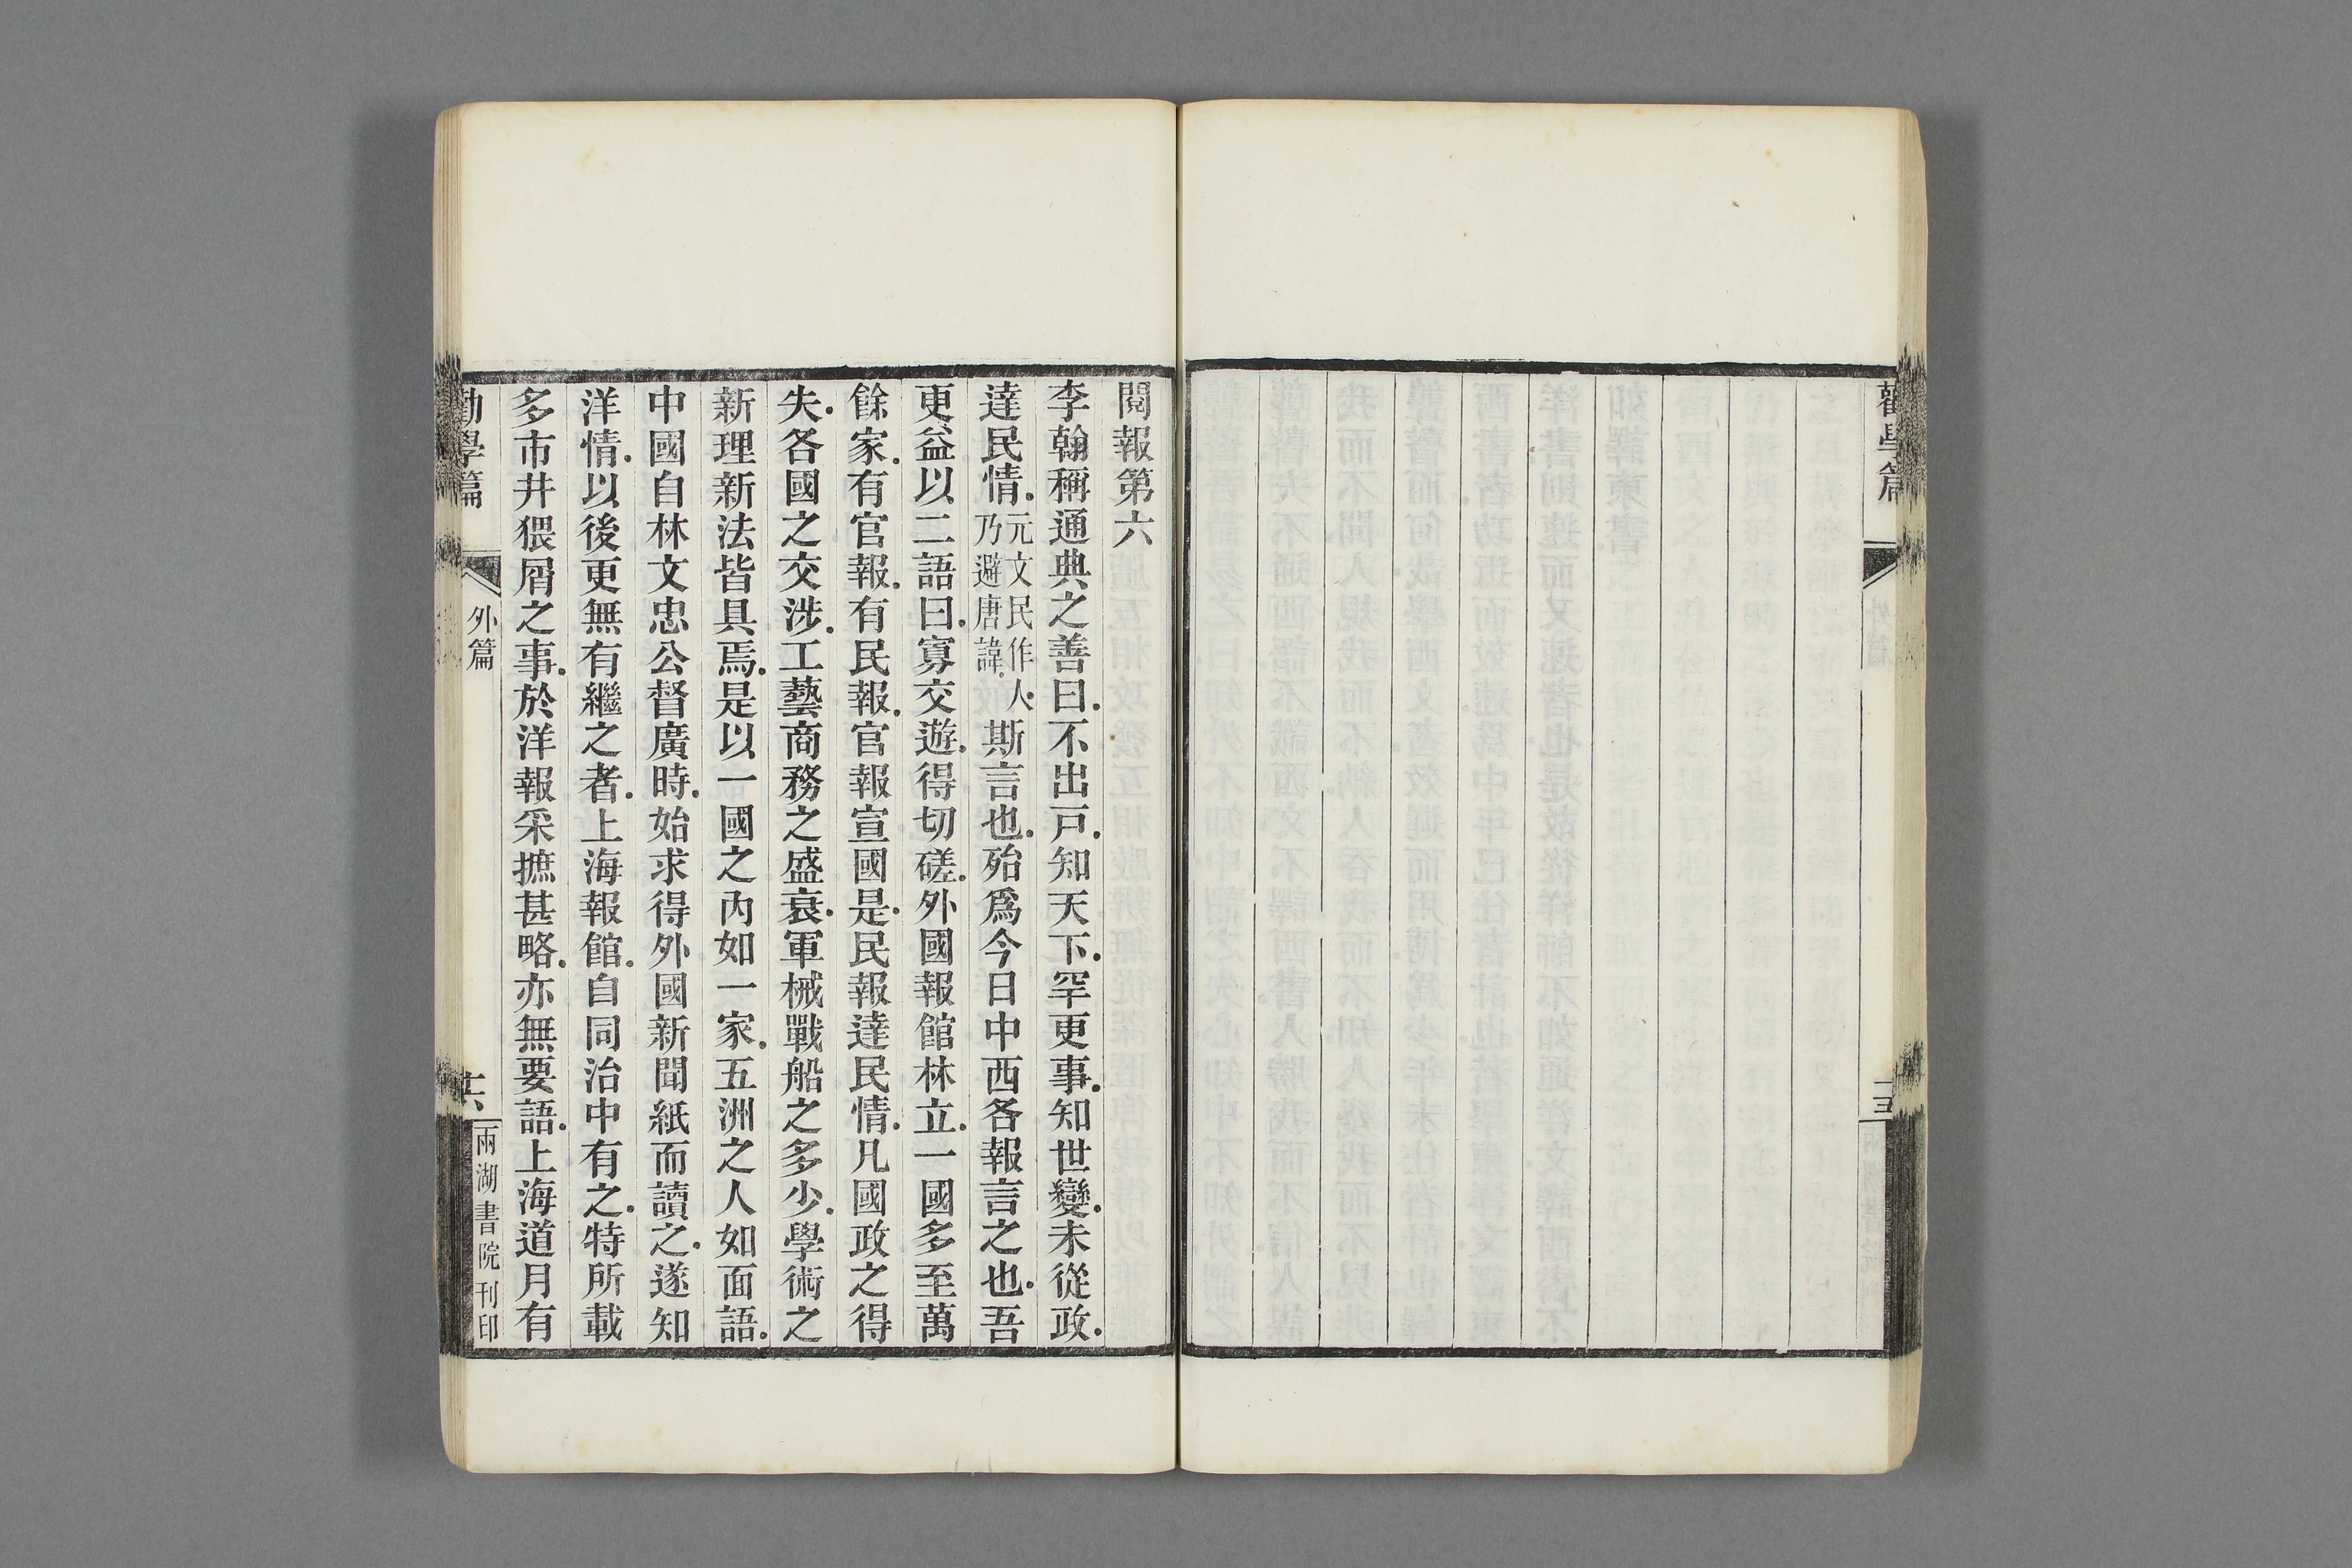 勸學篇
閱報第六
李翰稱通典之善曰.不出戸.知天下.罕更事.知世變.未從政.
達民情.元文民作人.乃避唐諱.斯言也.殆爲今日中西各報言之也.吾
更益以二語曰.寡交遊.得切磋.外國報館林立.一國多至萬
餘家.有官報.有民報.官報宣國是.民報達民情.凡國政之得
失.各國之交涉.工藝商務之盛衰.軍械戰船之多少.學術之
新理新法皆具焉.是以一國之內如一家.五洲之人如面語.
中國自林文忠公督廣時.始求得外國新聞紙而讀之.遂知
洋情.以後更無有繼之者.上海報館.自同治中有之.特所載
多市井猥屑之事.於洋報采摭甚略.亦無要語.上海道月有
勸學篇
外篇
十六
兩湖書院刊印